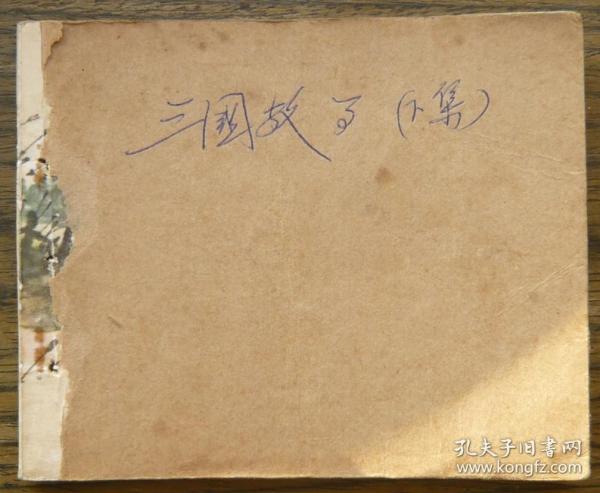 三國故事（下集）
孔夫子旧書网
www.kongfz.com